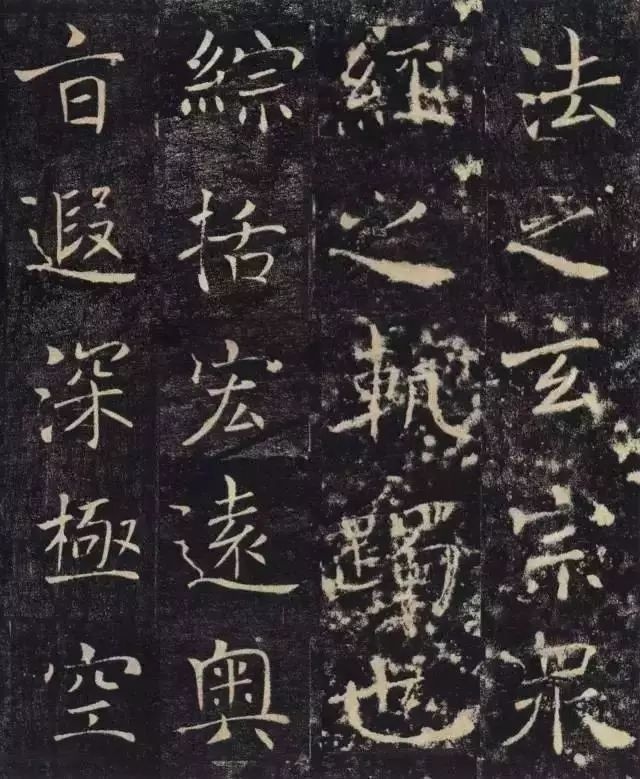 法之玄宗眾
經之軌躅也
綜括宏遠奧
旨遐深極空